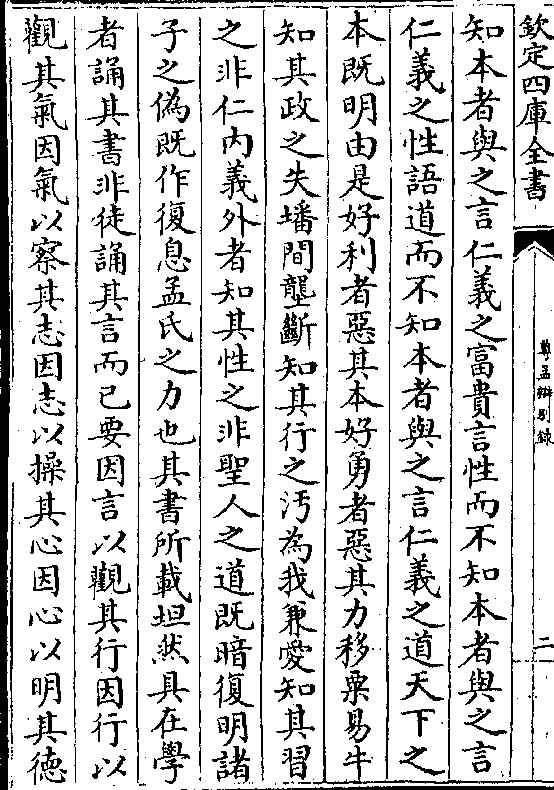 欽定四庫全書
尊孟辨别錄
二
知本者與之言仁義之富貴言性而不知本者與之言
仁義之性語道而不知本者與之言仁義之道天下之
本既明由是好利者惡其本好勇者惡其力移粟易牛
知其政之失墦間壟斷知其行之汚為我兼愛知其習
之非仁内義外者知其性之非聖人之道既暗復明諸
子之偽既作復息孟氏之力也其書所載坦然具在學
者誦其書非徒誦其言而已要因言以觀其行因行以
觀其氣因氣以察其志因志以操其心因心以明其德